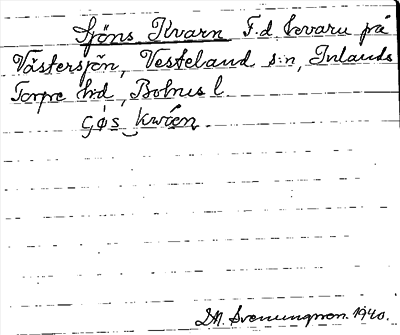 Sjöns Kvarn F.d. kvarn på
Västersjön, Vesteland s:n, Inlands
Torpe hd, Bohus l.
Gøs kwáen.
D.A. Svenungsson. 1940.